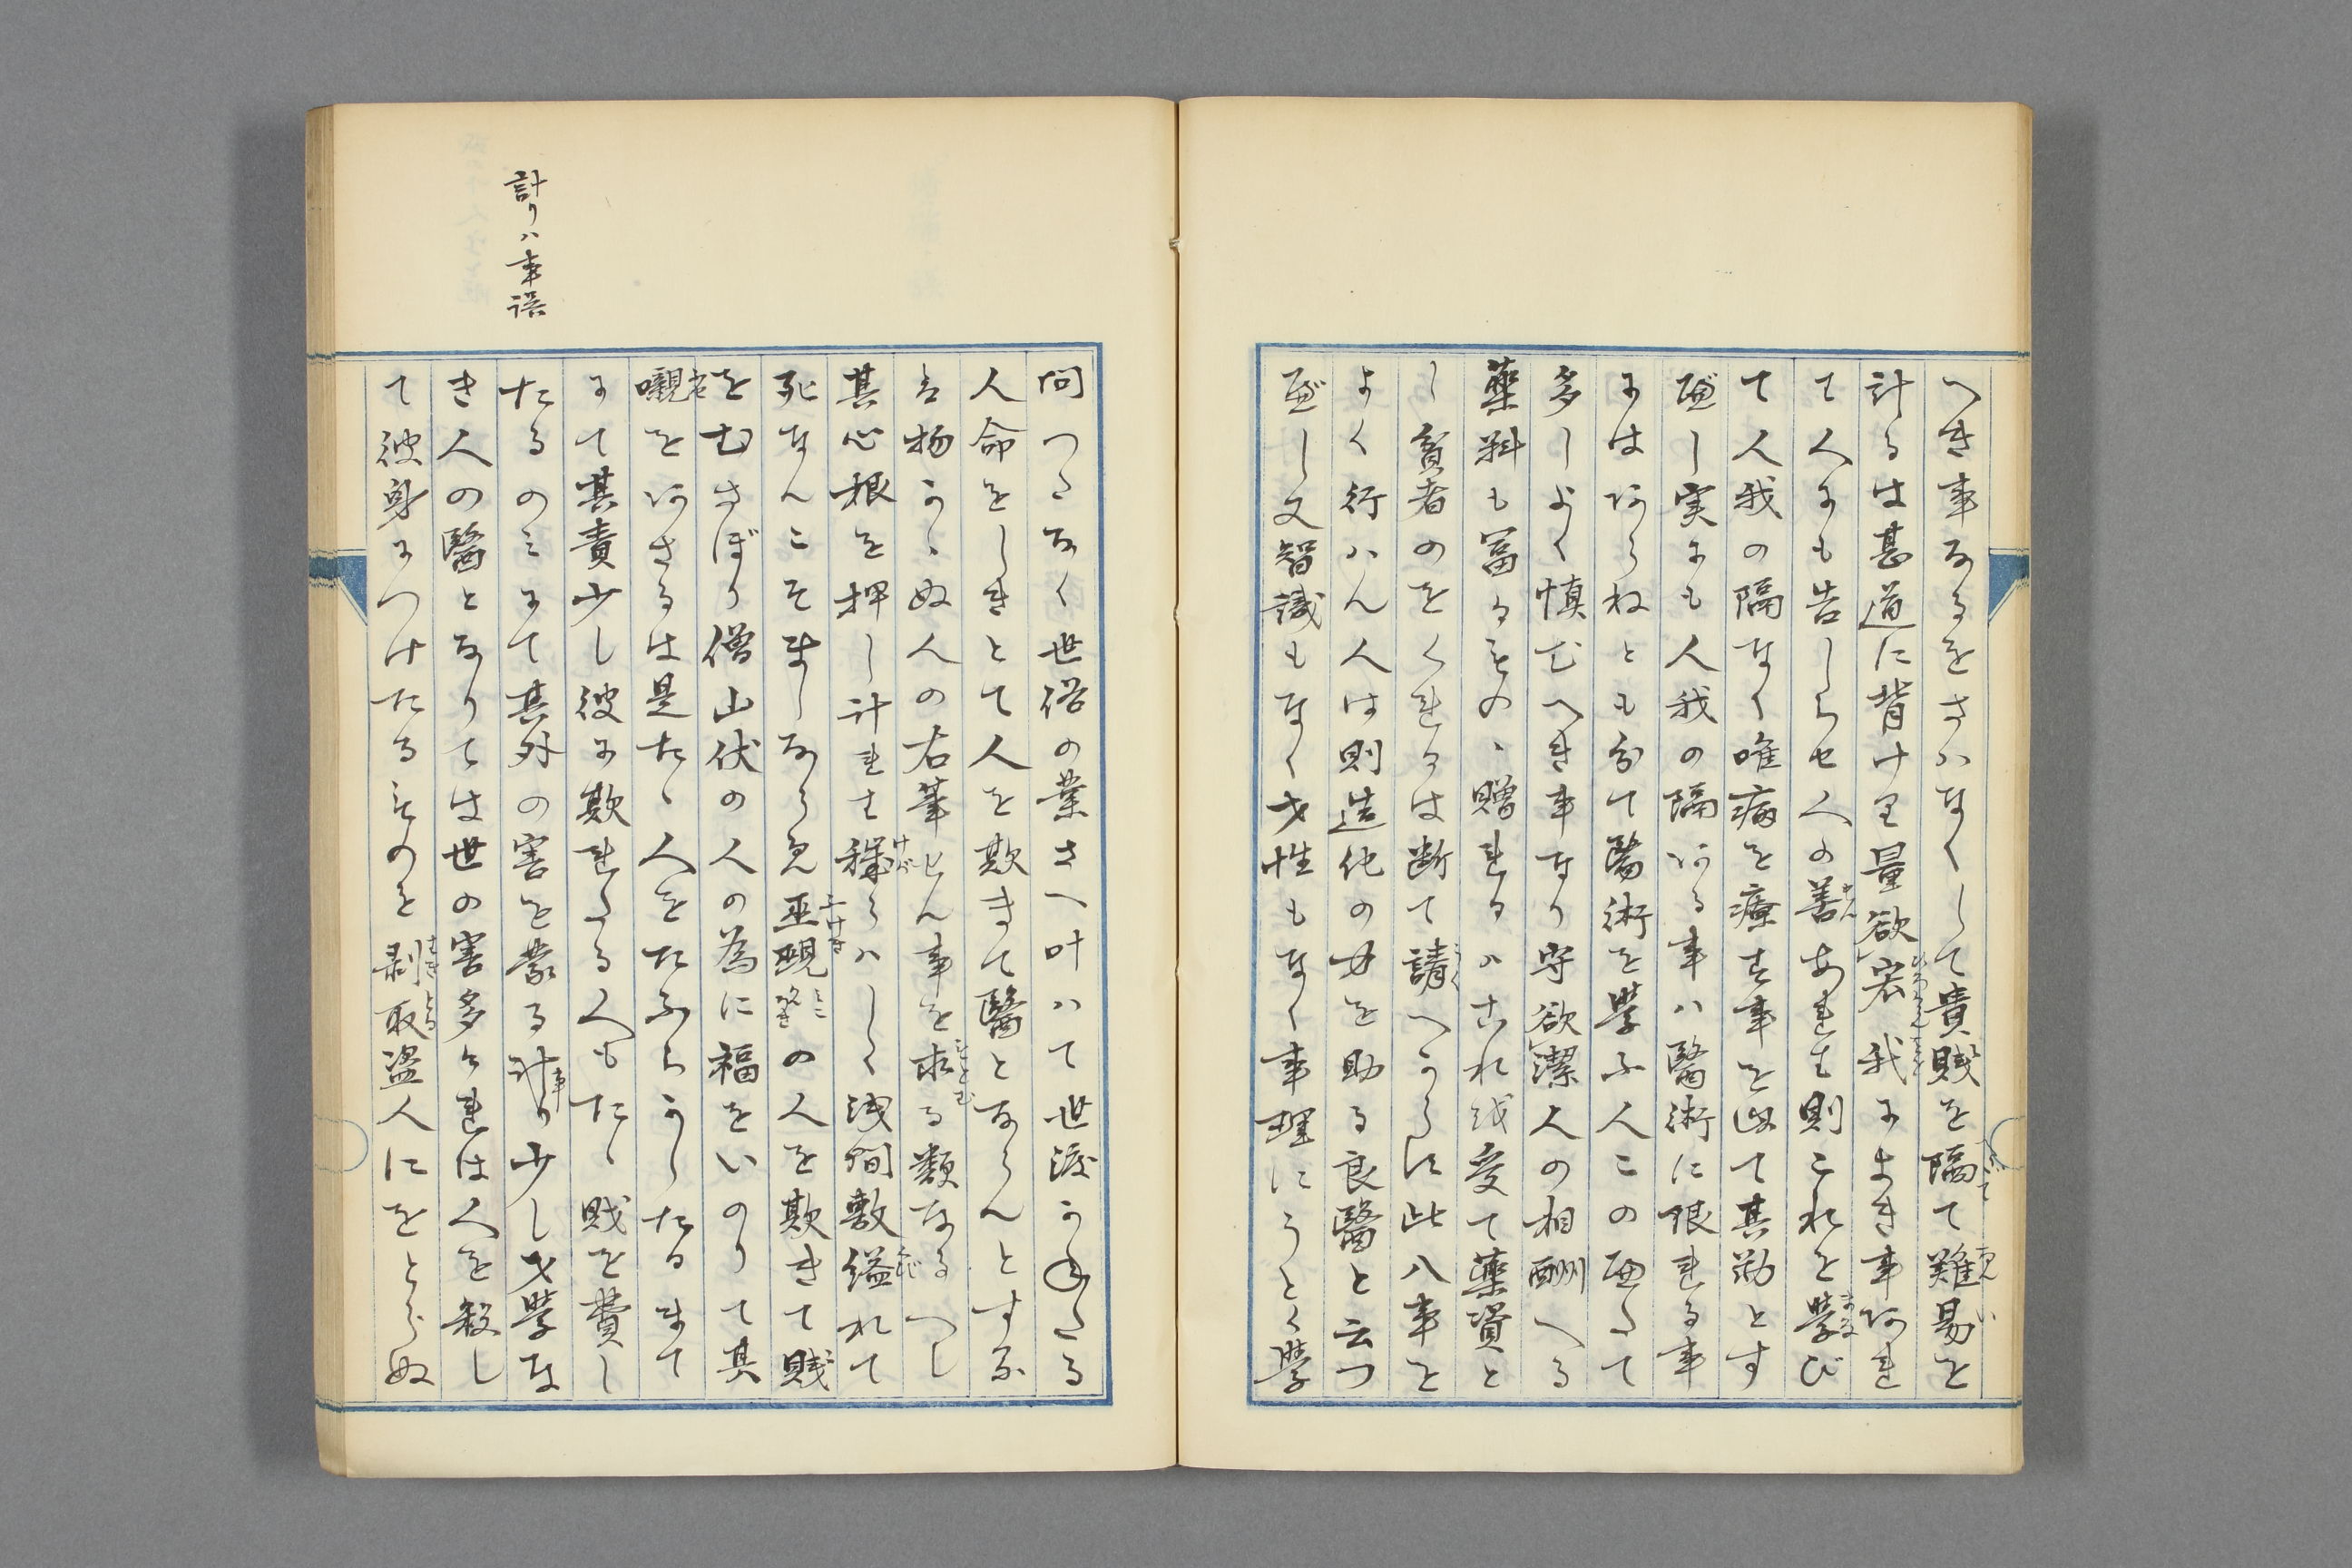 へき事なるをさハなくして貴賤を隔て難易を
計るは甚道に背けり量欲宏我によき事あれ
て人にも告しらせ人の善あれも則これを学び
て人我の隔なく唯病を療す事を以て其勤とす
べし実にも人我の隔ある事ハ医術に限れる事
にはあらねとも別て醫術を学ふ人この因りて
多しよく慎むへき事なり守欲潔人の相酬へる
薬料も冨るものゝ贈れるハこれ我受て薬資と
し貧者のをくれるは断て請へからす此八事を
よく行ハん人は則造化の母を助る良醫と云つ
べし又智識もなく才性もなく事理にうとく学
問つたなく世俗の業さへ叶ハて世渡かねたる
人命をしきとて人を欺きて醫とならんとするハ
は物かゝぬ人の右筆せん事を求る類なるべし
其心根を押し計れは穢らハしく浅間敷縊れて
死なんこそましならめ巫覡の人を欺きて賤
をむさぼり僧山伏の人の為に福をいのりて其
嚫をあさるは是たゝ人をたふらかしたるまて
にて其責少し彼に欺れたる人もたゝ賎を費し
たるのミにて其外の害を蒙る計り少し才学な
き人の醫となりては世の害多けれは人を殺し
て彼身につけたるものを剥取盗人にをとらぬ
計りハ事誤